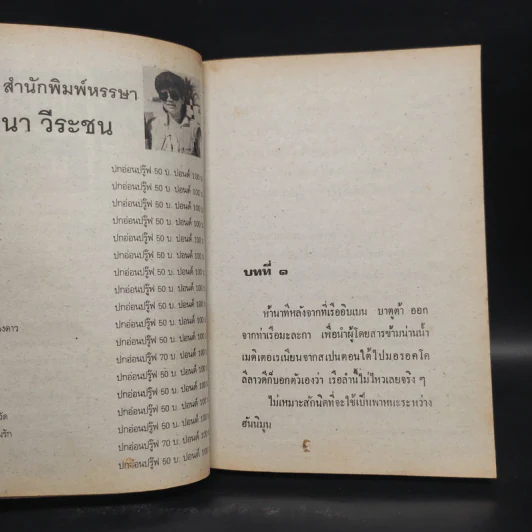 สำนักพิมพ์หรรษา
นา วีระชน
ปกอ่อนปรู๊ฟ 50 บ. ปอนด์ 100 บ
ปกอ่อนปรู๊ฟ 50 บ. ปอนด์ 100
ปกอ่อนปรู๊ฟ 50 บ. ปอนด์ 100
ปกอ่อนปรู๊ฟ 50 บ. ปอนด์ 100
ปกอ่อนปรู๊ฟ 50 บ. ปอนด์ 100
ปกอ่อนปรู๊ฟ 50 บ. ปอนด์ 100
ปกอ่อนปรู๊ฟ 50 บ. ปอนด์ 100
ปกอ่อนปรู๊ฟ 50 บ. ปอนด์ 100
ปกอ่อนปรู๊ฟ 50 บ. ปอนด์ 100
ปกอ่อนปรู๊ฟ 50 บ. ปอนด์ 100
ปกอ่อนปรู๊ฟ 50 บ. ปอนด์ 100
ปกอ่อนปรู๊ฟ 70 บ. ปอนด์ 100
ปกอ่อนปรู๊ฟ 50 บ. ปอนด์ 100
ปกอ่อนปรู๊ฟ 50 บ. ปอนด์ 100
ปกอ่อนปรู๊ฟ 50 บ. ปอนด์ 100
ปกอ่อนปรู๊ฟ 50 บ. ปอนด์ 100
ปกอ่อนปรู๊ฟ 70 บ. ปอนด์ 100
ปกอ่อนปรู๊ฟ 50 บ. ปอนด์ 100
บทที่ ๑
ห้านาทีหลังจากที่เรืออิบเบน บาตูต้า ออก
จากท่าเรือมะละกา เพื่อนำผู้โดยสารข้ามน่านน้ำ
เมดิเตอเรเนียนจากสเปนตอนใต้ไปมอรอคโค
ลีลาวดีก็บอกตัวเองว่า เรือลำนี้ไม่ไหวเลยจริง ๆ
ไม่เหมาะสักนิดที่จะใช้เป็นพาหนะระหว่าง
สันนิมูน